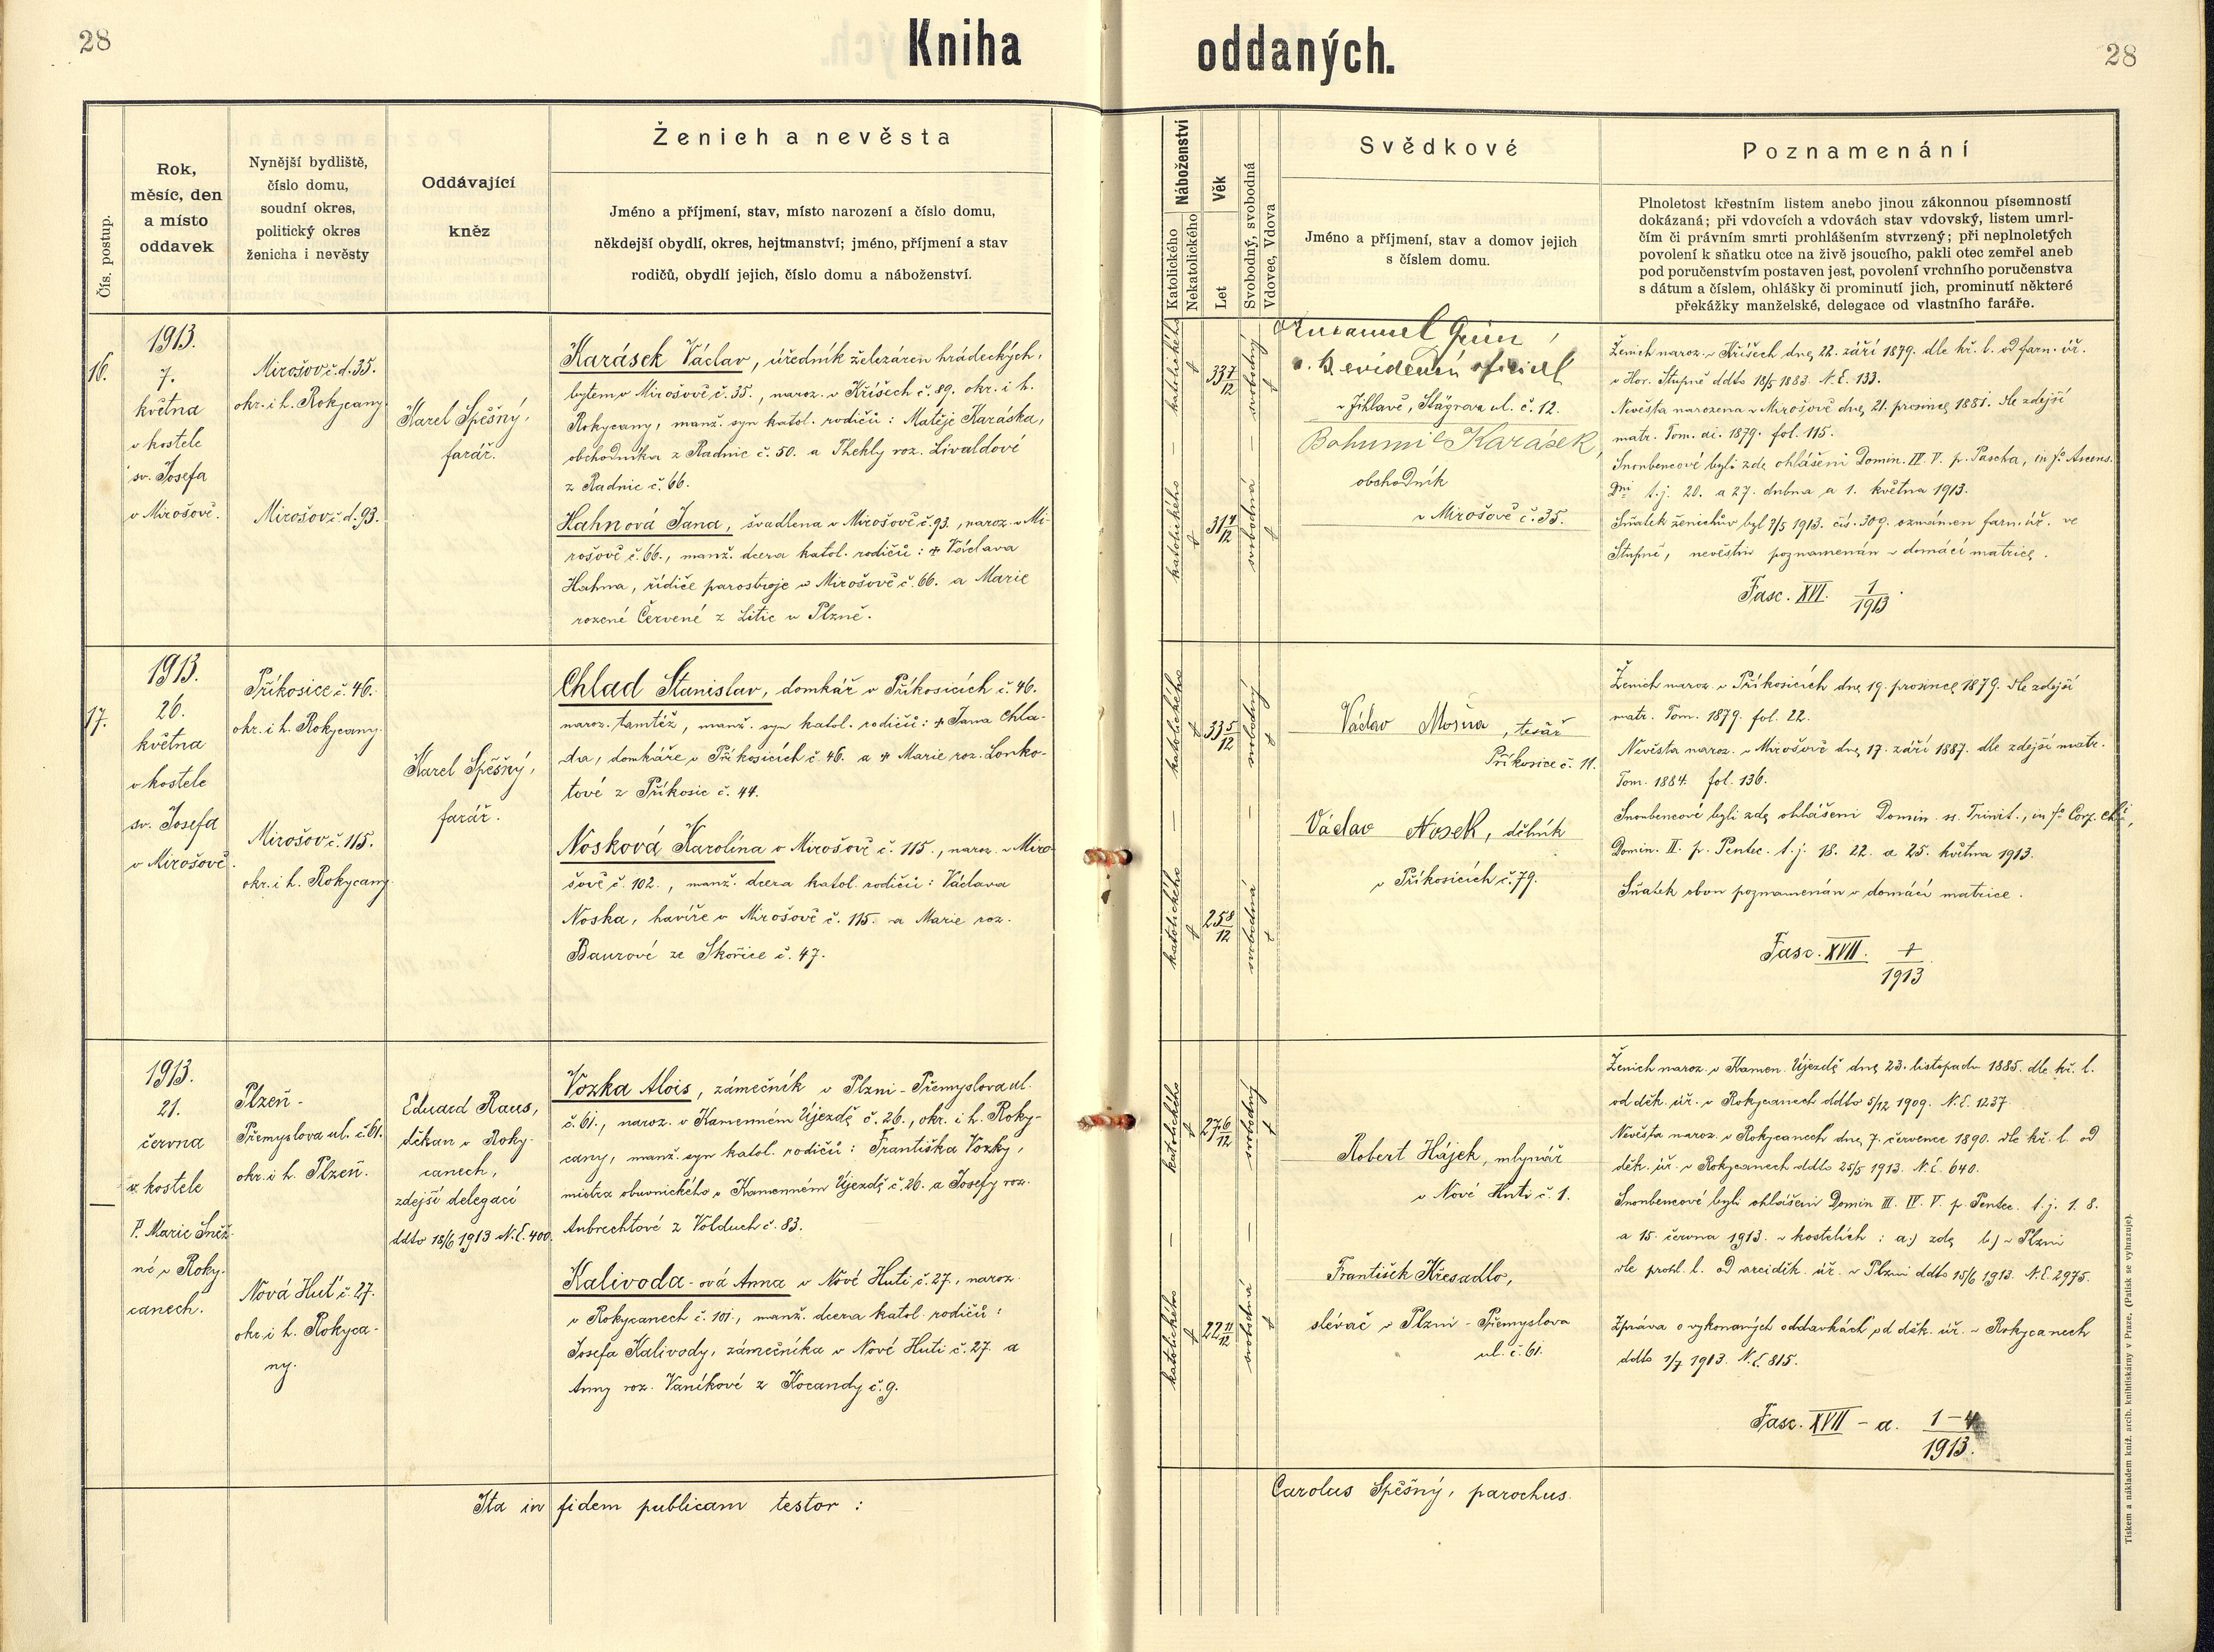 28
Kniha oddaných.
28
Čís. postup.
Rok,
měsíc, den
a místo
oddavek
Nynější bydliště,
číslo domu,
soudní okres,
politický okres
ženicha i nevěsty
Oddávající
kněz
Ženich a nevěsta
Jméno a příjmení, stav, místo narození a číslo domu,
někdejší obydlí, okres, hejtmanství; jméno, příjmení a stav
rodičů, obydlí jejich, číslo domu a náboženství.
Náboženství
Katolického
Nekatolického
Věk
Let
Svobodný, svobodná
Vdovec, Vdova
Svědkové
Jméno a příjmení, stav a domov jejich
s číslem domu.
Poznamenání
Plnoletost křestním listem anebo jinou zákonnou písemností
dokázaná; při vdovcích a vdovách stav vdovský, listem umrl-
čím či právním smrti prohlášením stvrzený; při neplnoletých
povolení k sňatku otce na živě jsoucího, pakli otec zemřel aneb
pod poručenstvím postaven jest, povolení vrchního poručenstva
s dátum a číslem, ohlášky či prominutí jich, prominutí některé
překážky manželské, delegace od vlastního faráře.
16.
1913.
7.
května
v kostele
sv. Josefa
v Mirošově.
Mirošov č. d. 35.
okr. i h. Rokycany
Mirošov č. d. 93.
Karel Spěšný,
farář.
Karásek Václav, úředník železáren hrádeckých,
bytem v Mirošově č. 35., naroz. v Křišech č. 89. okr. i h.
Rokycany, manž. syn katol. rodičů: Matěje Karáska,
obchodníka z Radnic č. 50. a Thekly roz. Livaldové
z Radnic č. 66.
Hahnová Jana, švadlena v Mirošově č. 93., naroz. v Mi-
rošově č. 66., manž. dcera katol. rodičů: + Václava
Hahna, řidiče parostroje v Mirošově č. 66. a Marie
rozené Červené z Litic u Plzně.
katolického
33 7/12
svobodný
katolického
31 4/12
svobodná
Grün,
v Jihlavě, Stägrova ul. č. 12.
Bohumil Karásek,
obchodník
v Mirošově č. 35.
Ženich naroz. v Křišech dne 22. září 1879. dle kř. l. od farn. úř.
v Hor. Stupně ddto 18/5 1883. N. E. 133.
Nevěsta narozena v Mirošově dne 21. prosince 1881. dle zdejší
matr. Tom. ai. 1879. fol. 115.
Snoubencové byli zde ohlášeni Domin. IV. V. p. Pascha, in fo Ascens.
Dni t. j. 20. a 27. dubna a 1. května 1913.
Sňatek ženichův byl 7/5 1913. čís. 309. oznámen farn. úř. ve
Stupně, nevěstin poznamenán v domácí matrice.
Fasc. XVI. 1/1913.
17.
1913.
26.
května
v kostele
sv. Josefa
v Mirošově.
Příkosice č. 46.
okr. i h. Rokycany.
Mirošov č. 115.
okr. i h. Rokycany.
Karel Spěšný,
farář.
Chlad Stanislav, domkář v Příkosicích č. 46.
naroz. tamtéž, manž. syn katol. rodičů: + Jana Chla-
da, domkáře v Příkosicích č. 46. a + Marie roz. Lonko-
tové z Příkosic č. 44.
Nosková Karolina v Mirošově č. 115., naroz. v Miro-
šově č. 102., manž. dcera katol. rodičů: Václava
Noska, havíře v Mirošově č. 115. a Marie roz.
Baurové ze Skořice č. 47.
katolického
33 5/12
svobodný
katolického
25 8/12
svobodná
Václav Mošna, tesář
Příkosice č. 11.
Václav Nosek, dělník
v Příkosicích č. 79.
Ženich naroz. v Příkosicích dne 19. prosince 1879. dle zdejší
matr. Tom. 1879. fol. 22.
Nevěsta naroz. v Mirošově dne 17. září 1887. dle zdejší matr.
Tom. 1884. fol. 136.
Snoubencové byli zde ohlášeni Domin. ss. Trinit., in fo Corp. Chi,
Domin. II. p. Pentec. t. j. 18. 22. a 25. května 1913.
Sňatek obou poznamenán v domácí matrice.
Fasc. XVII. 1/1913
1913.
21.
června
v kostele
P. Marie Sněž-
né v Roky-
canech.
Plzeň-
Přemyslova ul. č. 61.
okr. i h. Plzeň.
Nová Huť č. 27.
okr. i h. Rokyca-
ny.
Eduard Raus,
děkan v Roky-
canech,
zdejší delegací
ddto 18/6 1913 N. E. 400.
Vozka Alois, zámečník v Plzni - Přemyslova ul.
č. 61., naroz. v Kamenném Újezdě č. 26., okr. i h. Roky-
cany, manž. syn katol. rodičů: Františka Vozky,
mistra obuvnického v Kamenném Újezdě č. 26. a Josefy roz.
Aubrechtové z Volduch č. 83.
Kalivoda-ová Anna v Nové Huti č. 27., naroz.
v Rokycanech č. 101., manž. dcera katol. rodičů:
Josefa Kalivody, zámečníka v Nové Huti č. 27. a
Anny roz. Vaníkové z Kocandy č. 9.
katolického
27 6/12
svobodný
katolického
22 11/12
svobodná
Robert Hájek, mlynář
v Nové Huti č. 1.
František Křesadlo,
slévač v Plzni - Přemyslova
ul. č. 61.
Ženich naroz. v Kamen. Újezdě dne 23. listopadu 1885. dle kř. l.
od děk. úř. v Rokycanech ddto 5/12 1909. N. E. 1237.
Nevěsta naroz. v Rokycanech dne 7. července 1890. dle kř. l. od
děk. úř. v Rokycanech ddto 25/5 1913. N. E. 640.
Snoubencové byli ohlášeni Domin III. IV. V. p. Pentec. t. j. 1. 8.
a 15. června 1913. v kostelích: a.) zde b.) v Plzni
dle prohl. l. od arciděk. úř. v Plzni ddto 15/6 1913. N. E. 2975.
Zpráva o vykonaných oddavkách od děk. úř. v Rokycanech
ddto 1/7 1913. N. E. 815.
Fasc. XVII - a. 1-4/1913.
Ita in fidem publicam testor:
Carolus Spěšný, parochus.
Tiskem a nákladem kníž. arcib. knihtiskárny v Praze. (Patisk se vyhrazuje).